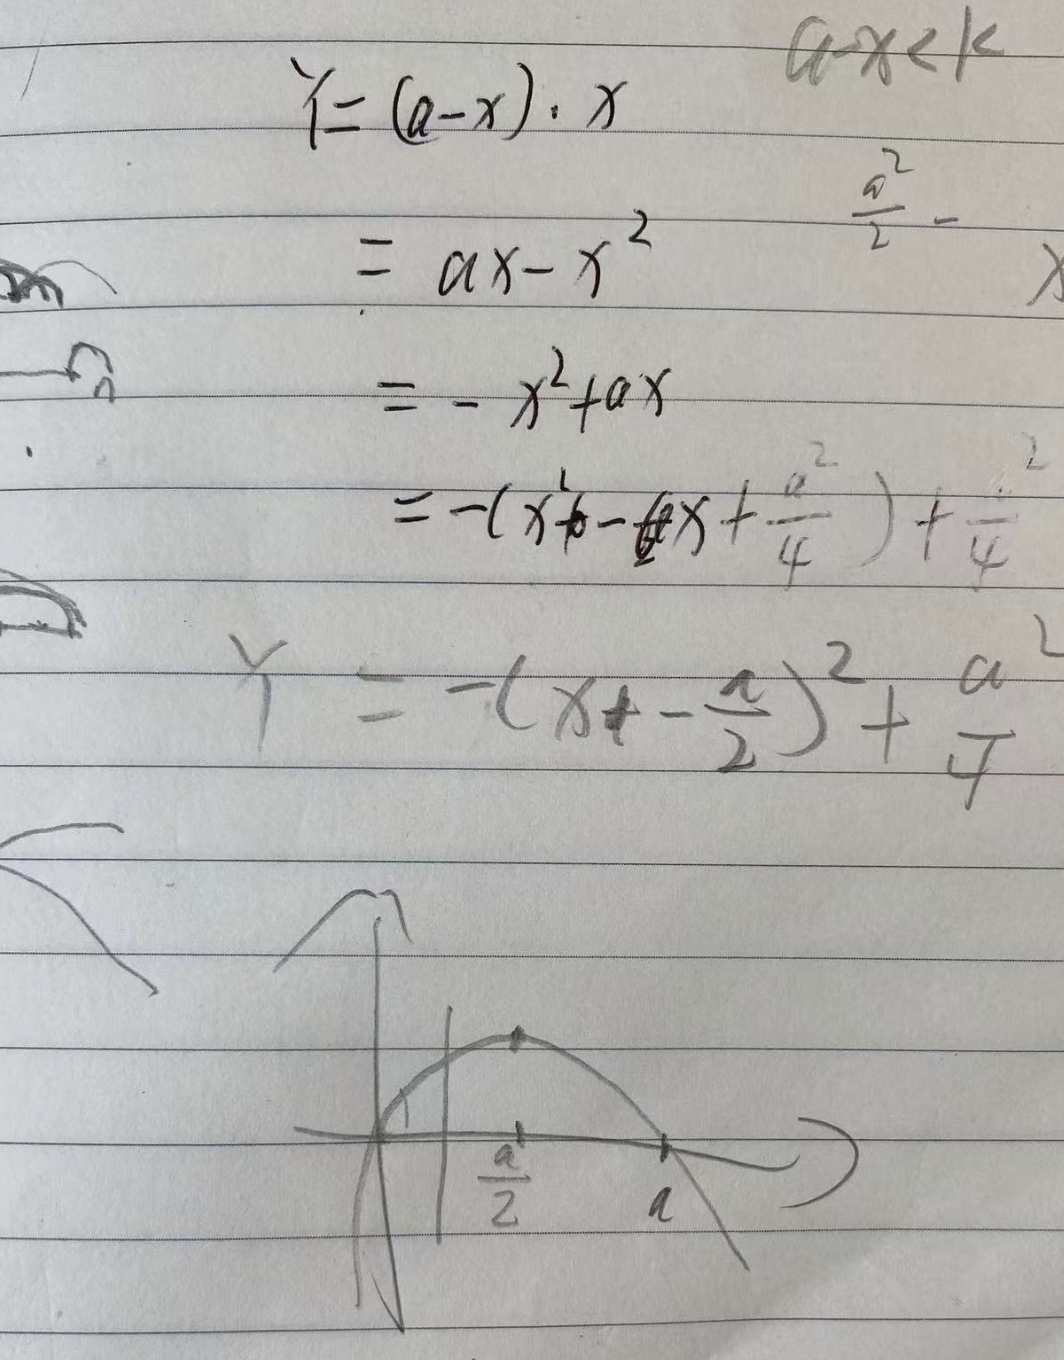 a-x<k
Y=(a-x)·x
a²/2 -
= ax-x²
x
= -x²+ax
=-(x²-ax+a²/4)+a²/4
Y = -(x-a/2)²+a²/4
a/2
a